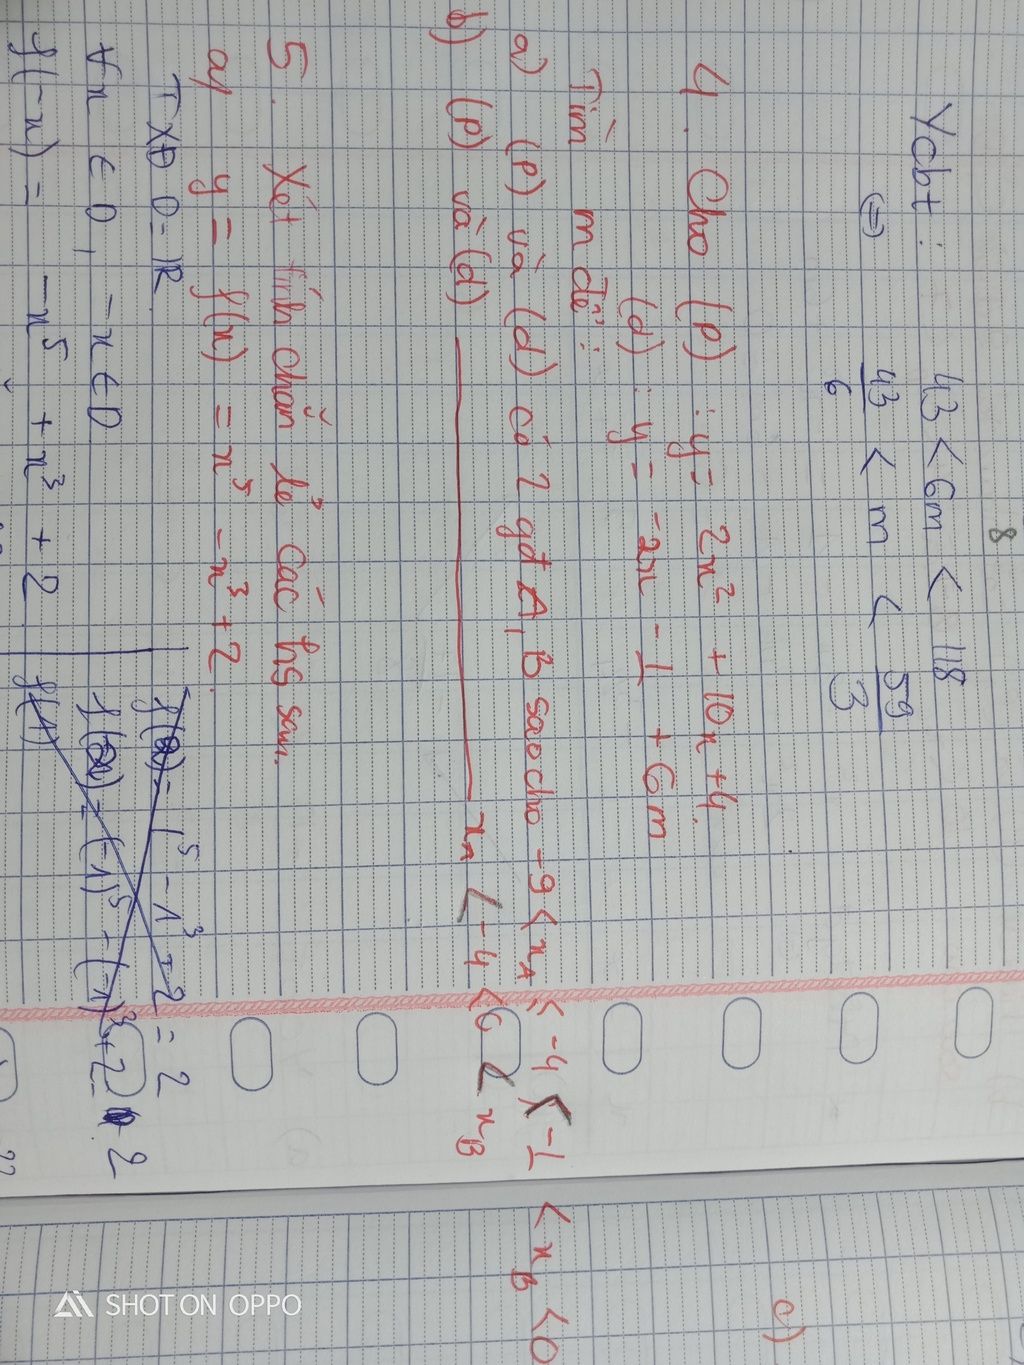 8
Ycbt: 43 < 6m < 118
⇔ 43/6 < m < 59/3
4. Cho (P): y = 2x² + 10x + 4.
(d): y = -2x - 1 + 6m
c)
Tìm m để:
a) (P) và (d) có 2 gđ A, B sao cho -9 < xA < -4 < -1 < xB < 0
b) (P) và (d) ——— xA < -4 < 0 < xB
5. Xét tính chẵn lẻ các hs sau.
a) y = f(x) = x⁵ - x³ + 2.
TXĐ D = R
∀x ∈ D, -x ∈ D
f(-x) = -x⁵ + x³ + 2
= 1⁵ - 1³ + 2 = 2
= (-1)⁵ - (-1)³ + 2 = 2
f(1)
SHOT ON OPPO